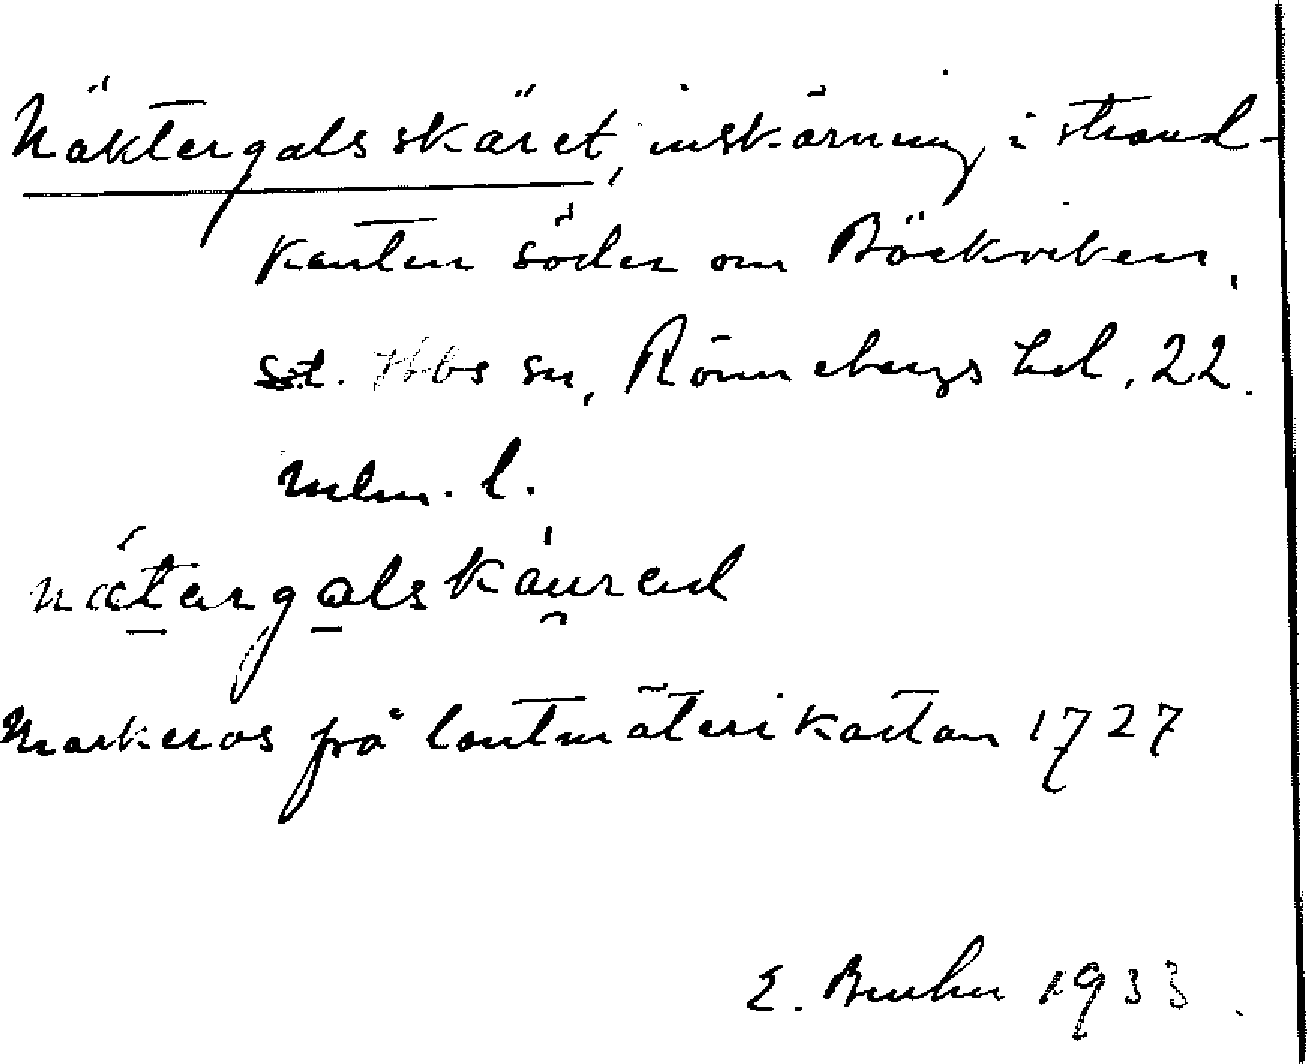 Näktergalsskäret, inskärning i strand-
kanten söder om Bäckviken,
St. Ibbs sn, Rönnebergs hd, 22.
Mlm. l.
nátargalskáurad
Markeras på lantmäterikartan 1727
E. Bruhn 1933.